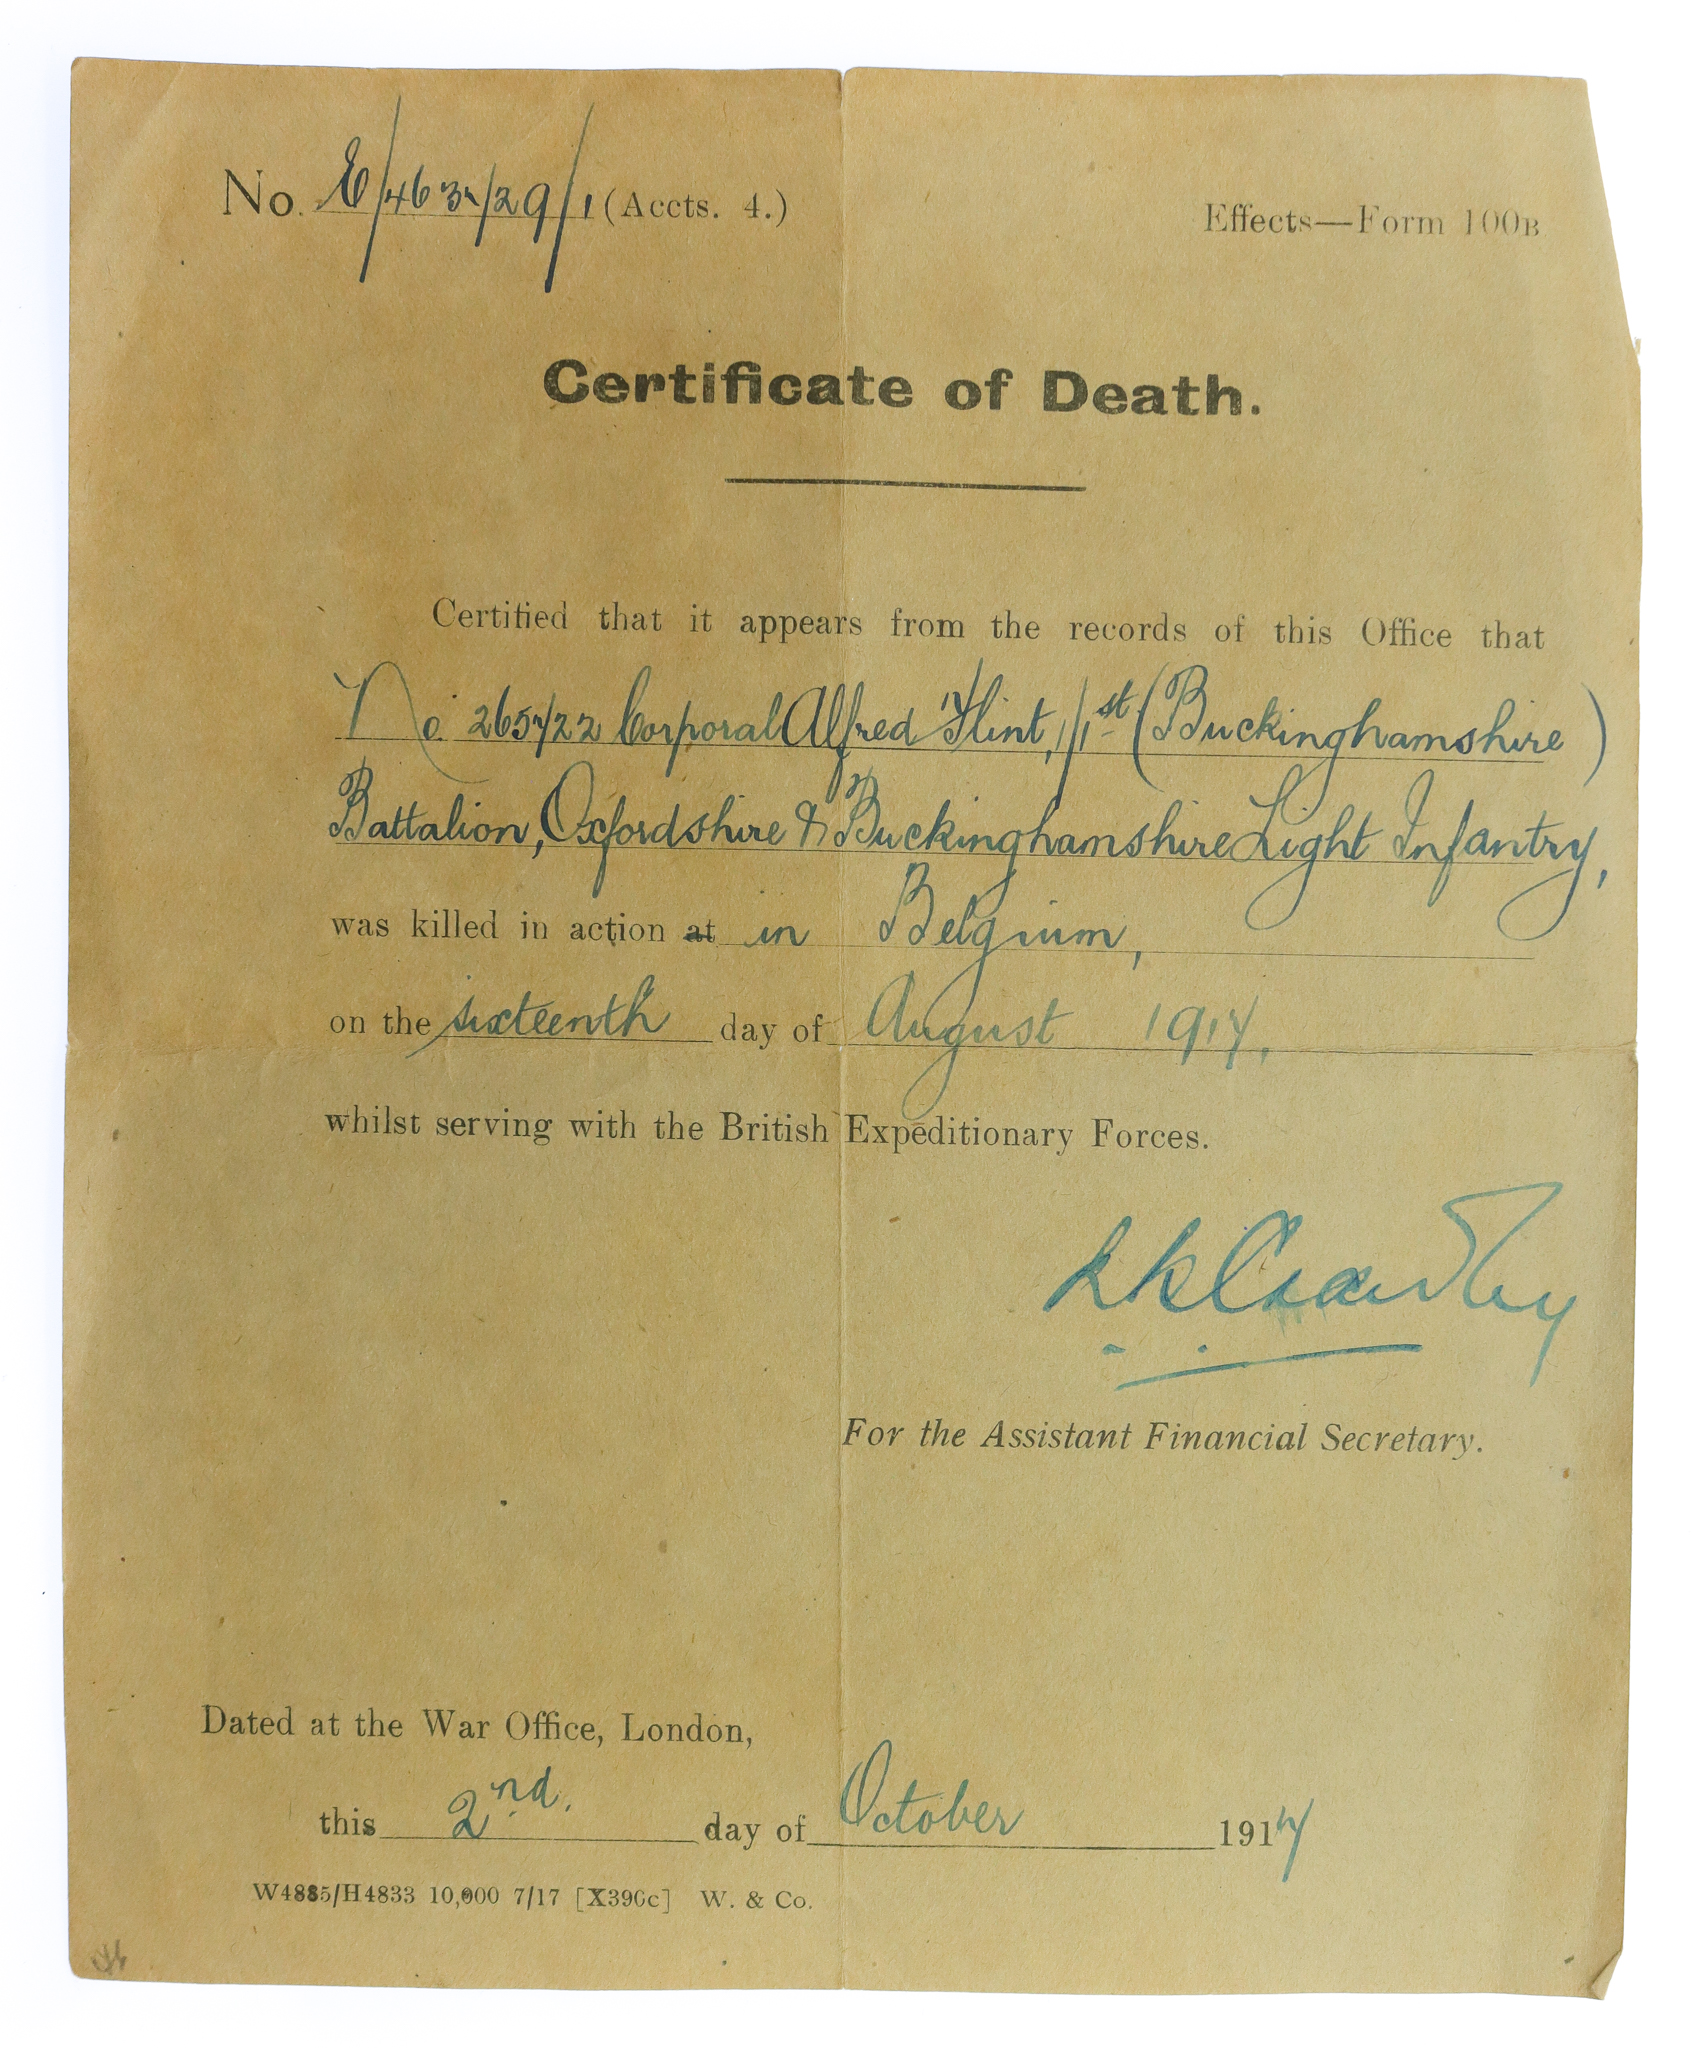 No. E/4637/29/1 (Accts. 4.)
Effects—Form 100B
Certificate of Death.
Certified that it appears from the records of this Office that
No. 265722 Corporal Alfred Flint, 1/1st (Buckinghamshire)
Battalion, Oxfordshire & Buckinghamshire Light Infantry,
was killed in action at in Belgium,
on the sixteenth day of August 1917,
whilst serving with the British Expeditionary Forces.
For the Assistant Financial Secretary.
Dated at the War Office, London,
this 2nd. day of October 1917
W4885/H4833 10,000 7/17 [X390c] W. & Co.